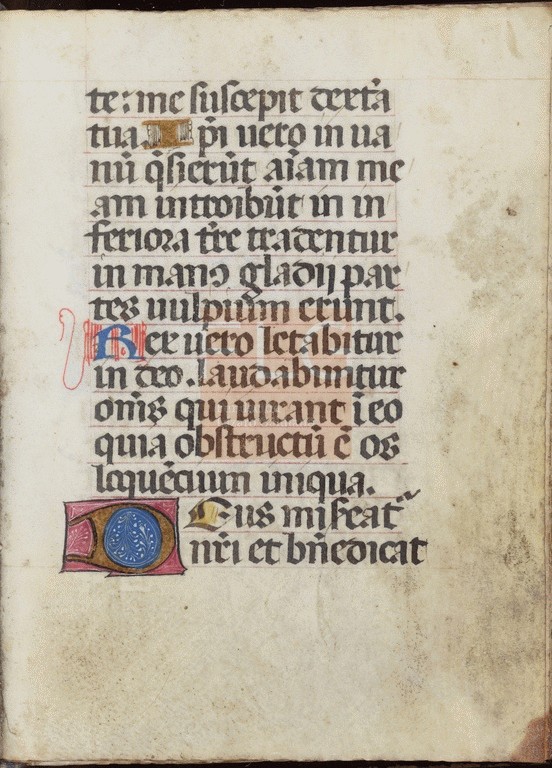 te: me suscepit dexta̅
tua. Ip̅i vero in va
nu̅ q̅sieru̅t ai̅am me
am introibu̅t in in
feriora t̅re tradentur
in manꝰ gladij par
tes vulpium erunt.
Rex vero letabitur
in deo. laudabuntur
om̅s qui iurant i̅ eo
quia obstructu̅ e̅ os
loque̅tium iniqua.
Deus mis̅eat᷑
nr̅i et bn̅edicat